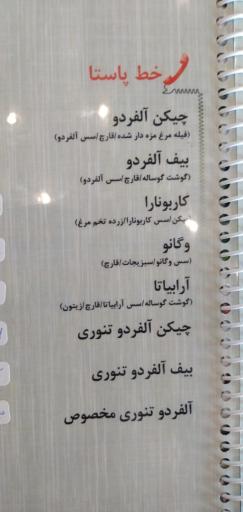 خط پاستا
چیکن آلفردو
(فیله مرغ مزه دار شده/قارچ/سس آلفردو)
بیف آلفردو
(گوشت گوساله/قارچ/سس آلفردو)
کاربونارا
/سس کاربونارا/زرده تخم مرغ)
وگانو
(سس وگانو/سبزیجات/قارچ)
آرابیاتا
(گوشت گوساله/سس آرابیاتا/قارچ/زیتون)
چیکن آلفردو تنوری
بیف آلفردو تنوری
آلفردو تنوری مخصوص